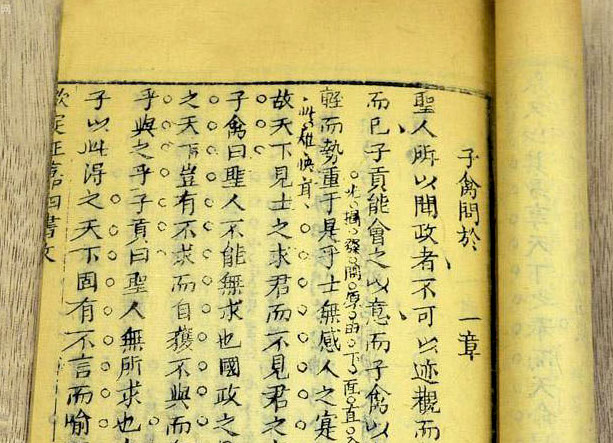 子禽問於 一章
聖人所以聞政者不可以迹觀而
而已子貢能會之以意而子禽以
發開原由下面直
輕而勢重于是乎士無感人之寔
快耳
故天下見士之求君而不見君之
子禽曰聖人不能無求也國政之
之天下豈有不求而自獲不與而
乎與之乎子貢曰聖人無所求也
子以此得之天下固有不言而喻
欽定正嘉四書文